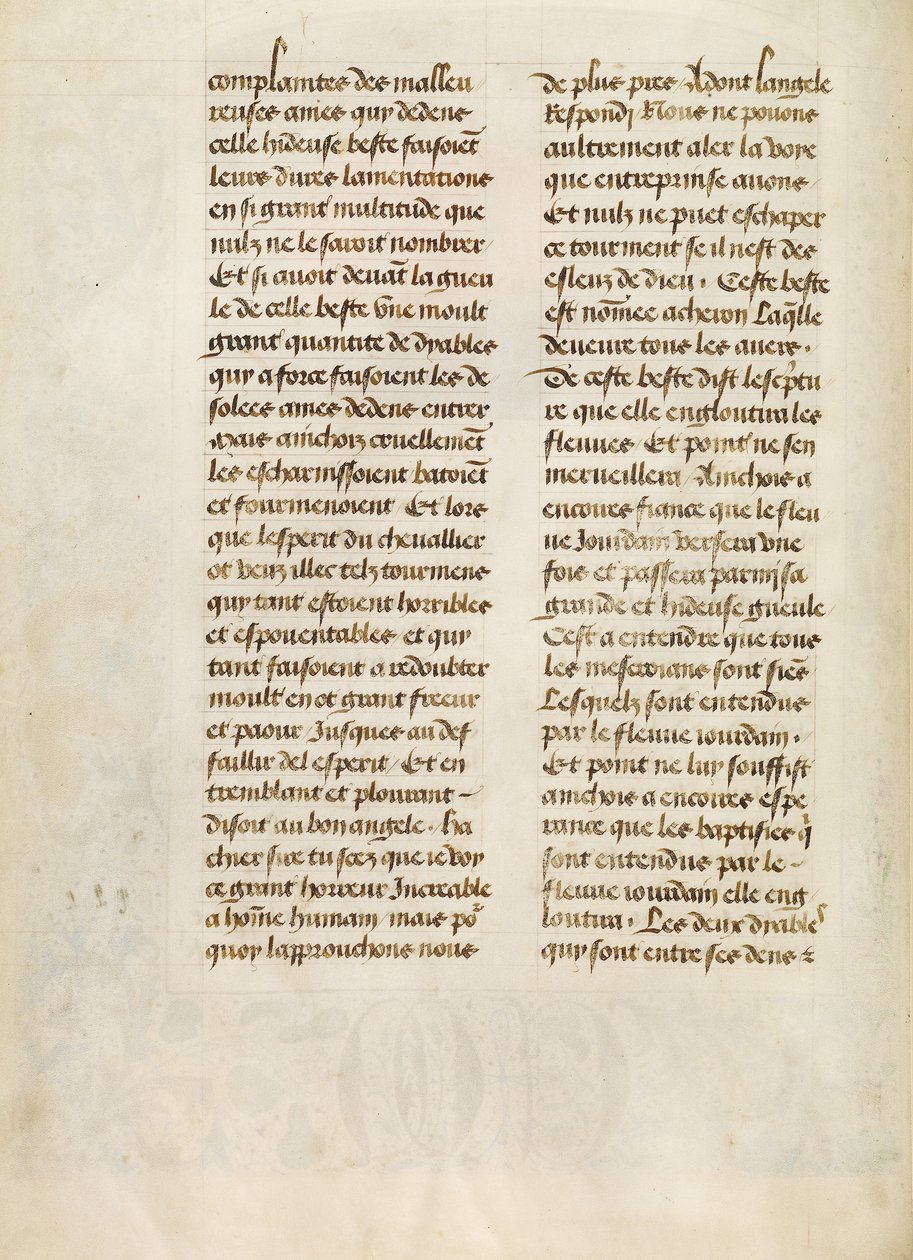 complaintes des malleu
reuses ames quy dedens
celle hideuse beste faisoiēt
leurs dures lamentations
en si grant multitude que
nulz ne le saroit nombrer /
Et si auoit deuāt la gueu
le de celle beste vne moult
grant quantite de dyables
quy a force faisoient les de
solees ames dedens entrer
Mais aincoiz cruellemēt
les escharnissoient batoiēt
et fourmenoient / Et lors
que lesperit du cheuallier
ot veuz illec telz tourmens
quy tant estoient horribles
et espouentables / et quy
tant faisoient a redoubter
moult en ot grant freeur
et paour / Jusques au def
faillir del esperit / Et en
tremblant et plourant –
disoit au bon angele . ha
chier sire tu scez que ie voy
ce grant horreur Increable
a hom̄e humain / mais po᷑
quoy lapprouchons nous
de plus pres / Adont langele
Respondj / Nous ne pouons
aultrement aler la voye
que entreprinse auons /
Et nulz ne puet eschaper
ce tourment se il nest des
esleuz de dieu . Ceste beste
est nōmee acheron Laq̄lle
deueure tous les auers .
De ceste beste dist lescͥptu
re que elle engloutira les
fleuues / Et point ne sen
merueillera / Ainchois a
encores fiance que le fleu
ue Jourdain versera vne
fois et passera parmj sa
grande et hideuse gueule /
Cest a entendre que tous
les mescreans sont siēs
Lesquelz sont entendus
par le fleuue iourdain .
Et point ne luy souffist
ainchois a encores espe
rance que les baptisies qͥ
sont entendus par le –
fleuue iourdain elle eng
loutira . Les deux dyables
quy sont entre ses dens ⁊